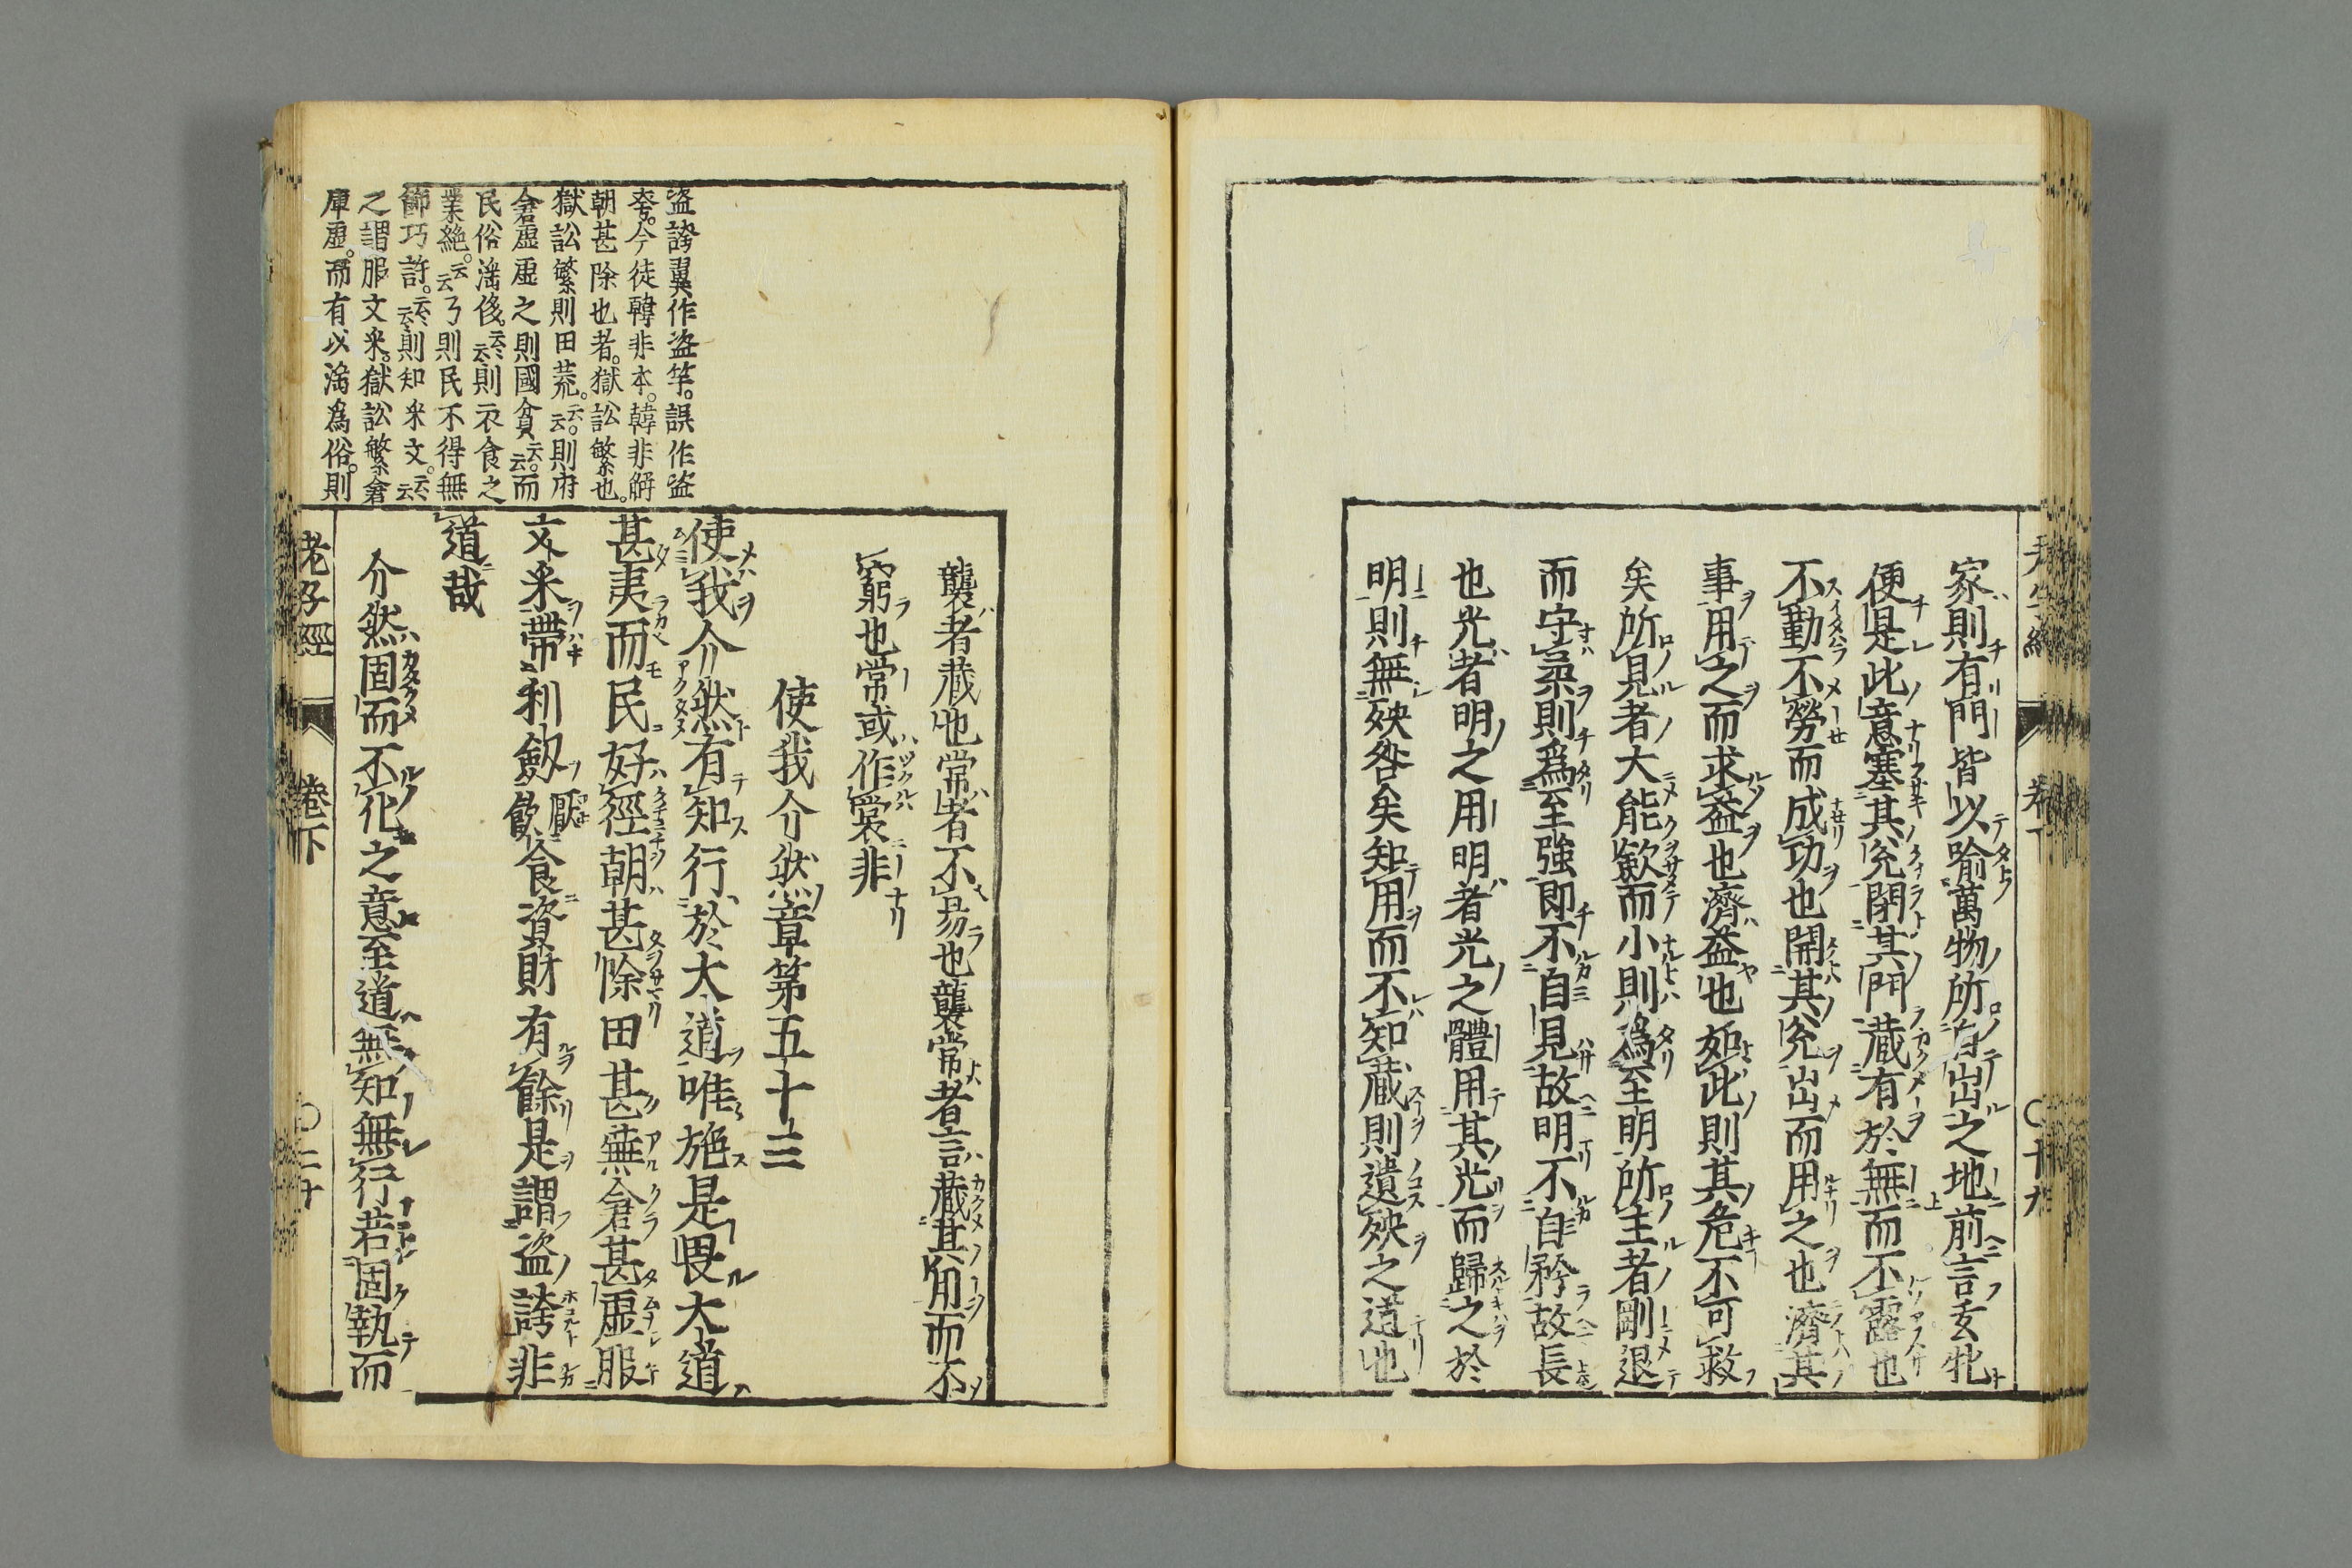 家則有門皆以喻萬物所有出之地前言玄牝
便是此意塞其兊閉其門藏有於無而不露也
不勤不勞而成功也開其兊出而用之也濟其
事用之而求益也濟益也如此則其危不可救
矣所見者大能歛而小則爲至明所主者剛退
而守柔則爲至強即不自見故明不自矜故長
也光者明之用明者光之體用其光而歸之於
明則無殃咎矣知用而不知藏則遺殃之道也
襲者藏也常者不易也襲常者言藏其用而不
窮也常或作裳非
使我介然章第五十三
使我介然有知行於大道唯施是畏大道
甚夷而民好徑朝甚除田甚蕪倉甚虛服
文采帶利劔厭飮食資財有餘是謂盜誇非
道哉
介然固而不化之意至道無知無行若固執而
盜誇翼作盜竽。誤作盜
夸。今徒韓非本。韓非解
朝甚除也者。獄訟繁也。
獄訟繁則田荒。云云。則府
倉虛虛之則國貧云云。而
民俗滛侈。云云則衣食之
業絶。云云乃則民不得無
飾巧詐。云云則知采文。云云
之謂服文采。獄訟繁倉
庫虛。而有以滛爲俗。則
老子經 卷下 〇二十